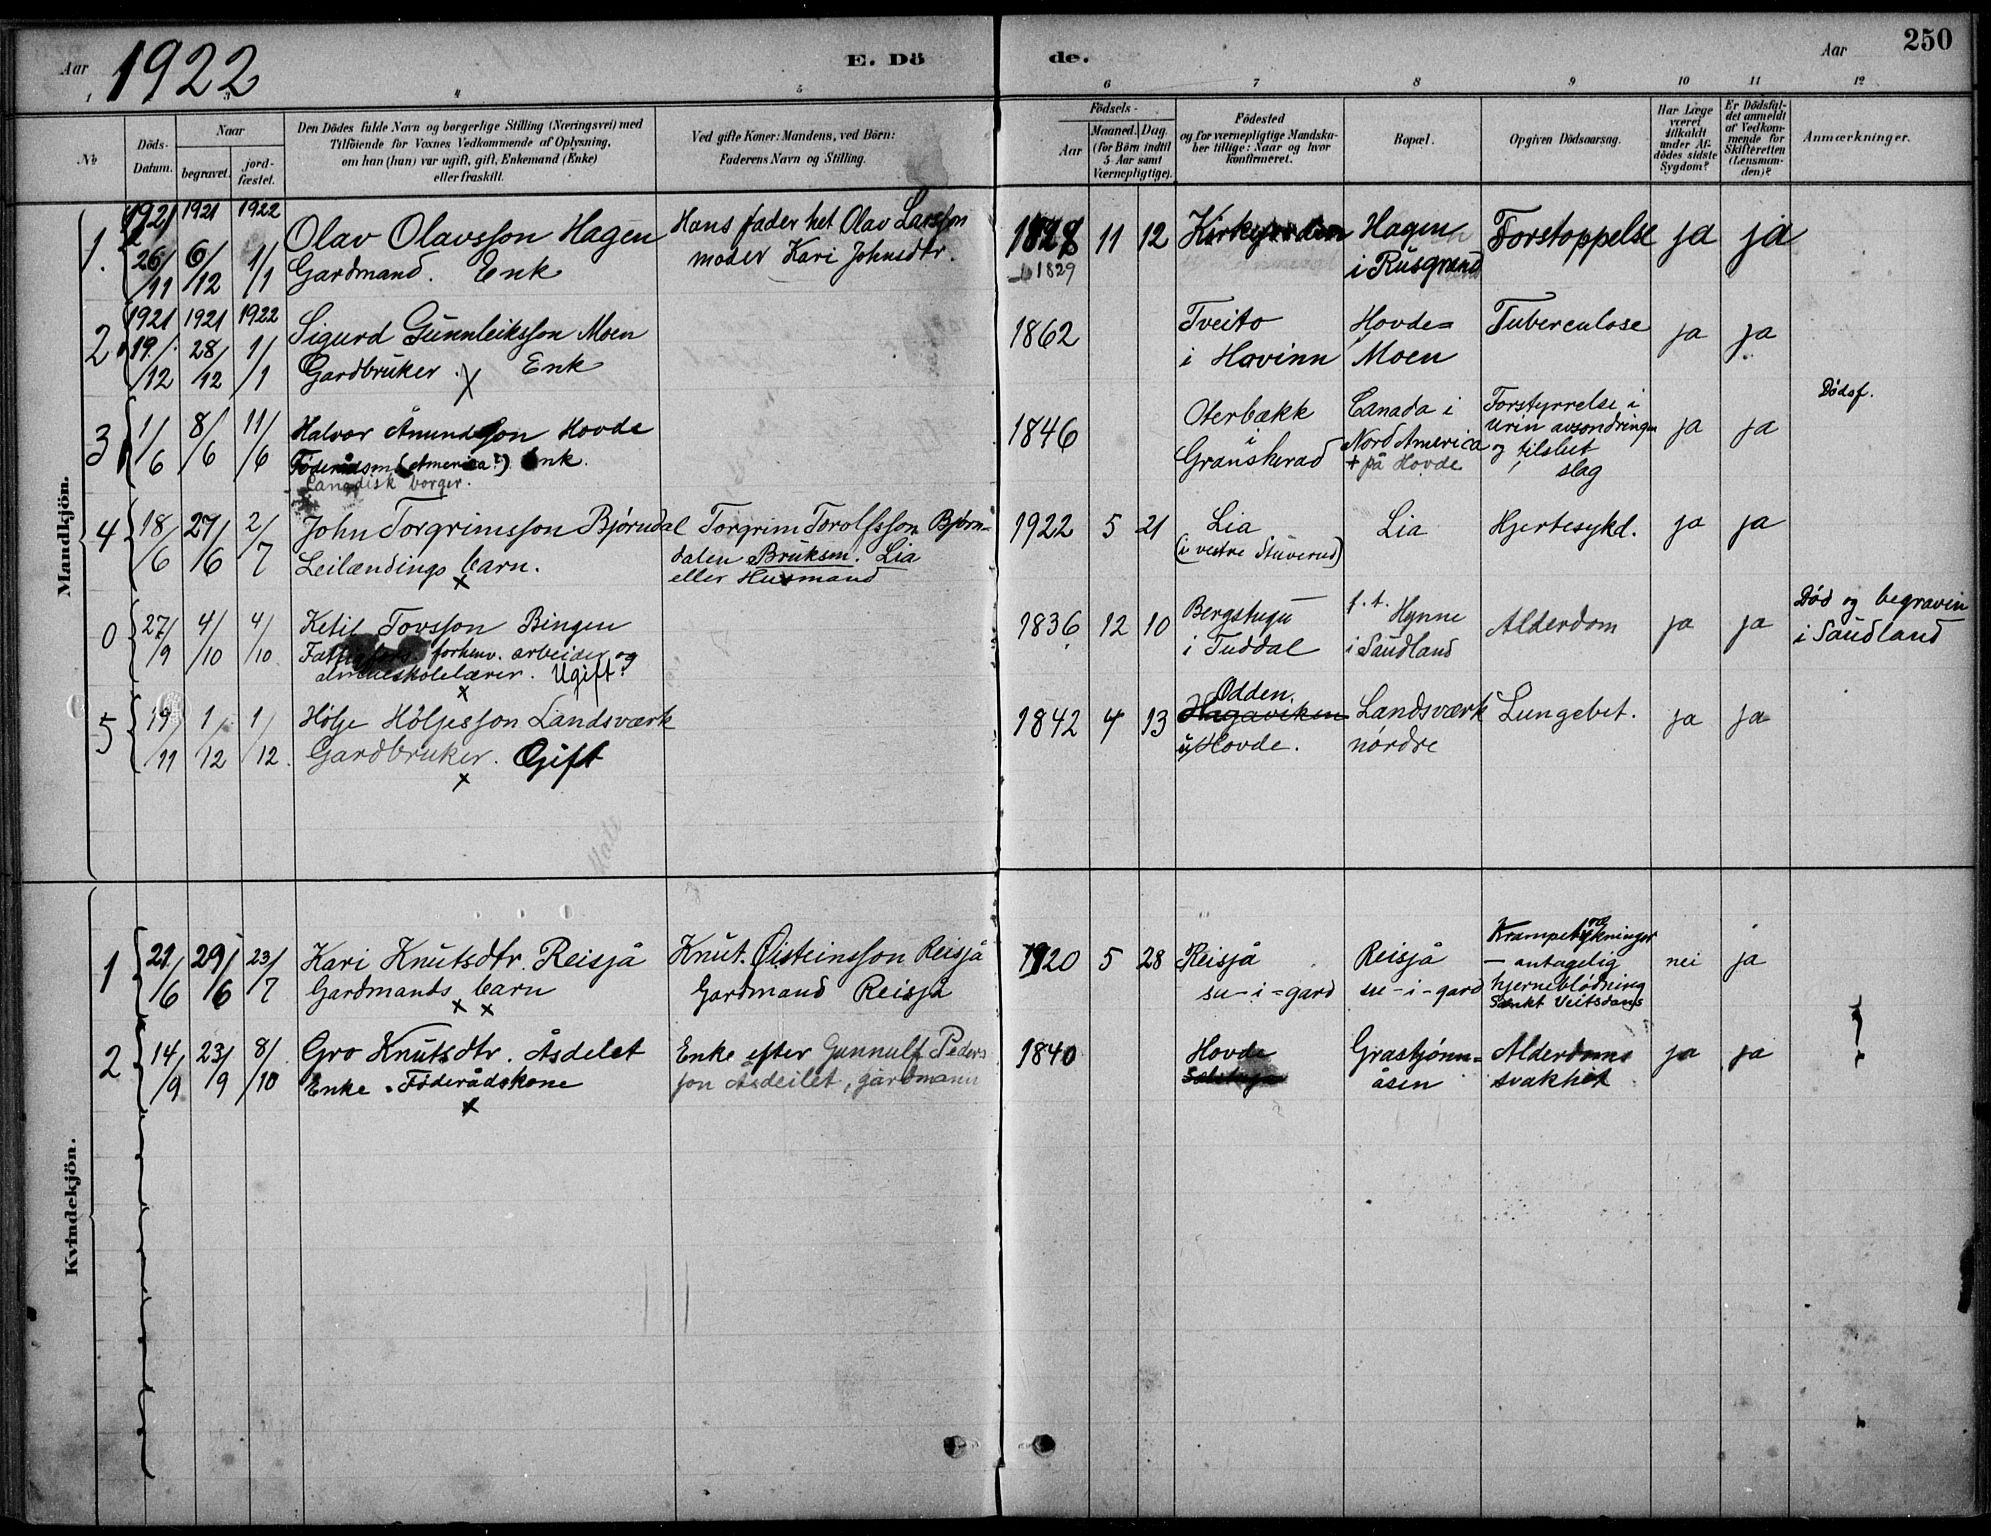 Aar 1922
E. Dö
de.
Aar 250
1 3 4 5 6 7 8 9 10 11 12
No
Döds-Datum.
Naar
begravet.
jord-fæstet.
Den Dödes fulde Navn og borgerlige Stilling (Næringsvei) med
Tilföiende for Voxnes Vedkommende af Oplysning,
om han (hun) var ugift, gift, Enkemand (Enke)
eller fraskilt.
Ved gifte Koner: Mandens, ved Börn:
Faderens Navn og Stilling.
Födsels-
Aar
Maaned. Dag.
(for Börn indtil
5 Aar samt
Værnepligtige).
Födested
og for værnepligtige Mandska-
ber tillige: Naar og hvor
konfirmeret.
Bopæl.
Opgiven Dödsaarsag.
Har Læge
været
tilkaldt
under Af-
dödes sidste
Sygdom?
Er Dödsfal-
det anmeldt
af Vedkom-
mende for
Skifteretten
(Lensman-
den)?
Anmærkninger.
Mandkjön.
1921 1921 1922
1. 26/11 6/12 1/1 Olav Olavsson Hagen
Gardmand. Enk
Hans fader het Olav Larsson
moder Kari Johnsdtr.
1828 11 12
1829
Hagen
i Rusgrend
Forstoppelse ja ja
1921 1921 1922
2 19/12 28/12 1/1 Sigurd Gunnleiksson Moen
Gardbruker. Enk
x
1862
Tveito
i Hovinn
Hovde=
Moen
Tuberculose ja ja
3 1/6 8/6 11/6 Halvor Åmundsson Hovde
Föderådsm (America?) Enk.
Canadisk borger.
1846
Oterbækk
i
Gransherad
Canada i
Nord America
+ på Hovde
Forstyrrelse i
urin avsondringen
og tilslut
slag
ja ja
Dödsf.
4 18/6 27/6 2/7 John Torgrimsson Bjørndal
Leilændings barn.
x
Torgrim Torolfsson Bjørn-
dalen Bruksm. Lia
eller Husmand
1922 5 21
Lia
(i vestre Stuverud)
Lia
Hjertesykd. ja ja
0 27/9 4/10 4/10 Ketil Tovsson Bingen
forhenv. arbeider og
Ugift.
x
1836 12 10
Bergstugu
i Tuddal
f.t. Hynne
i Saudland
Alderdom ja ja
Död og begravin
i Saudland
5 19/11 1/12 1/12 Hølje Höljesson Landsværk
Gardbruker. Gift
x
1842 4 13
Odden
Hagaviken
u/Hovde.
Landsværk
nordre
Lungebet. ja ja
Kvindekjön.
1 21/6 29/6 23/7 Kari Knutsdtr. Reisjå
Gardmands barn
x x
Knut Øisteinsson Reisjå
Gardmand Reisjå
1920 5 28
Reisjå
su-i-gard
Reisjå
su-i-gard
— antagelig
hjerneblødning
Sankt Veitsdans
nei ja
2 14/9 23/9 8/10 Gro Knutsdtr. Åsdelet
Enke. Föderådskone
x
Enke efter Gunnulf Peders
son Åsdeilet, gardmann
1840
Hovde
Grastjønn=
åsen
Alderdoms
svakhet
ja ja